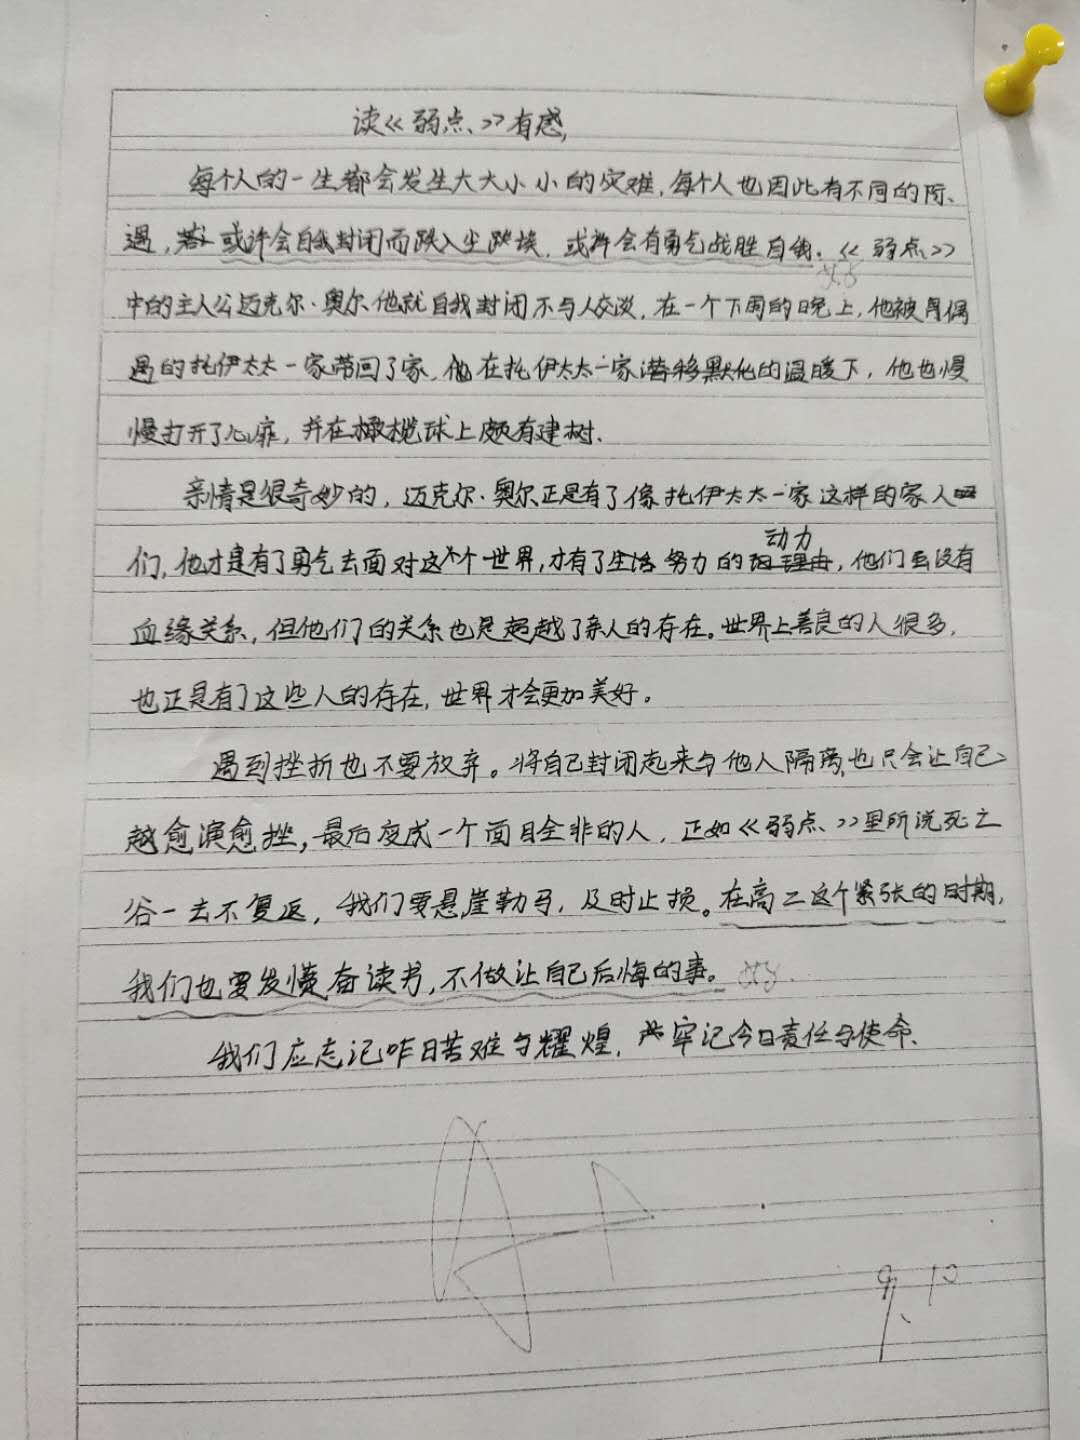 读《弱点》有感
每个人的一生都会发生大大小小的灾难,每个人也因此有不同的际
遇,或许会自我封闭而跌入尘埃,或许会有勇气战胜自我.《弱点》
中的主人公迈克尔·奥尔他就自我封闭不与人交谈,在一个下雨的晚上,他被偶
遇的托伊太太一家带回了家,他在托伊太太一家潜移默化的温暖下,他也慢
慢打开了心扉,并在橄榄球上颇有建树.
亲情是很奇妙的,迈克尔·奥尔正是有了像托伊太太一家这样的家人
动力
们,他才是有了勇气去面对这个世界,才有了生活努力的,他们虽没有
血缘关系,但他们的关系也是超越了亲人的存在。世界上善良的人很多,
也正是有了这些人的存在,世界才会更加美好。
遇到挫折也不要放弃。将自己封闭起来与他人隔离,也只会让自己
越愈演愈挫,最后变成一个面目全非的人,正如《弱点》里所说死亡
谷一去不复返,我们要悬崖勒马,及时止损。在高二这个紧张的时期,
我们也要发愤奋读书,不做让自己后悔的事。
我们应志记昨日苦难与耀煌,牢记今日责任与使命.
9.10